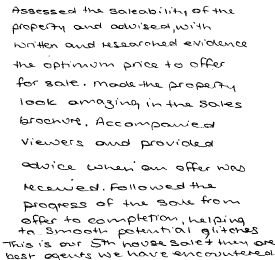 Assessed the saleability of the
property and advised, with
written and researched evidence
the optimum price to offer
for sale. Made the property
look amazing in the sales
brochure. Accompanied
viewers and provided
advice when an offer was
received. Followed the
progress of the sale from
offer to completion, helping
to smooth potential glitches
This is our 5th house sale & they are
best agents we have encountered